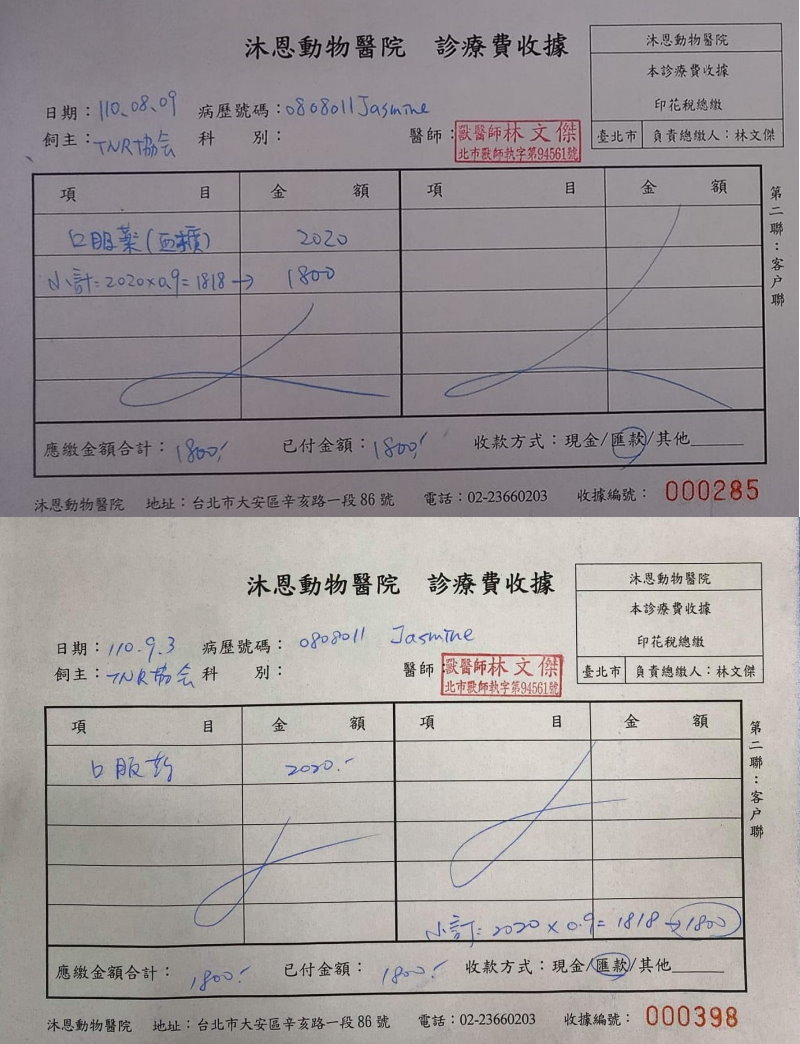 沐恩動物醫院 診療費收據
沐恩動物醫院
本診療費收據
印花稅總繳
臺北市 負責總繳人：林文傑
日期：110.08.09 病歷號碼：0808011 Jasmine
飼主：TNR協会 科 別： 醫師：獸醫師林文傑
北市獸師執字第94561號
項 目 金 額 項 目 金 額
口服藥(血檢) 2020
小計=2020×0.9=1818→ 1800
第二聯：客戶聯
應繳金額合計：1800.- 已付金額：1800.- 收款方式：現金/匯款/其他______
沐恩動物醫院 地址：台北市大安區辛亥路一段86號 電話：02-23660203 收據編號：000285
沐恩動物醫院 診療費收據
沐恩動物醫院
本診療費收據
印花稅總繳
臺北市 負責總繳人：林文傑
日期：110.9.3 病歷號碼：0808011 Jasmine
飼主：TNR協会 科 別： 醫師：獸醫師林文傑
北市獸師執字第94561號
項 目 金 額 項 目 金 額
口服葯 2020.-
小計=2020×0.9=1818→1800
第二聯：客戶聯
應繳金額合計：1800.- 已付金額：1800.- 收款方式：現金/匯款/其他______
沐恩動物醫院 地址：台北市大安區辛亥路一段86號 電話：02-23660203 收據編號：000398